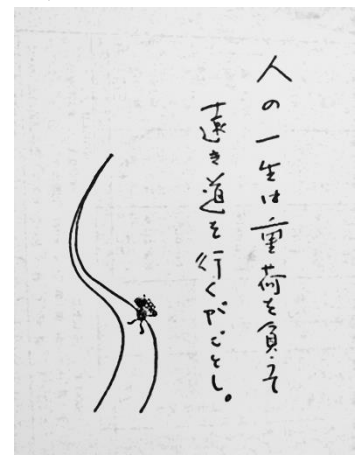 人の一生は重荷を負て
遠き道を行くがごとし。